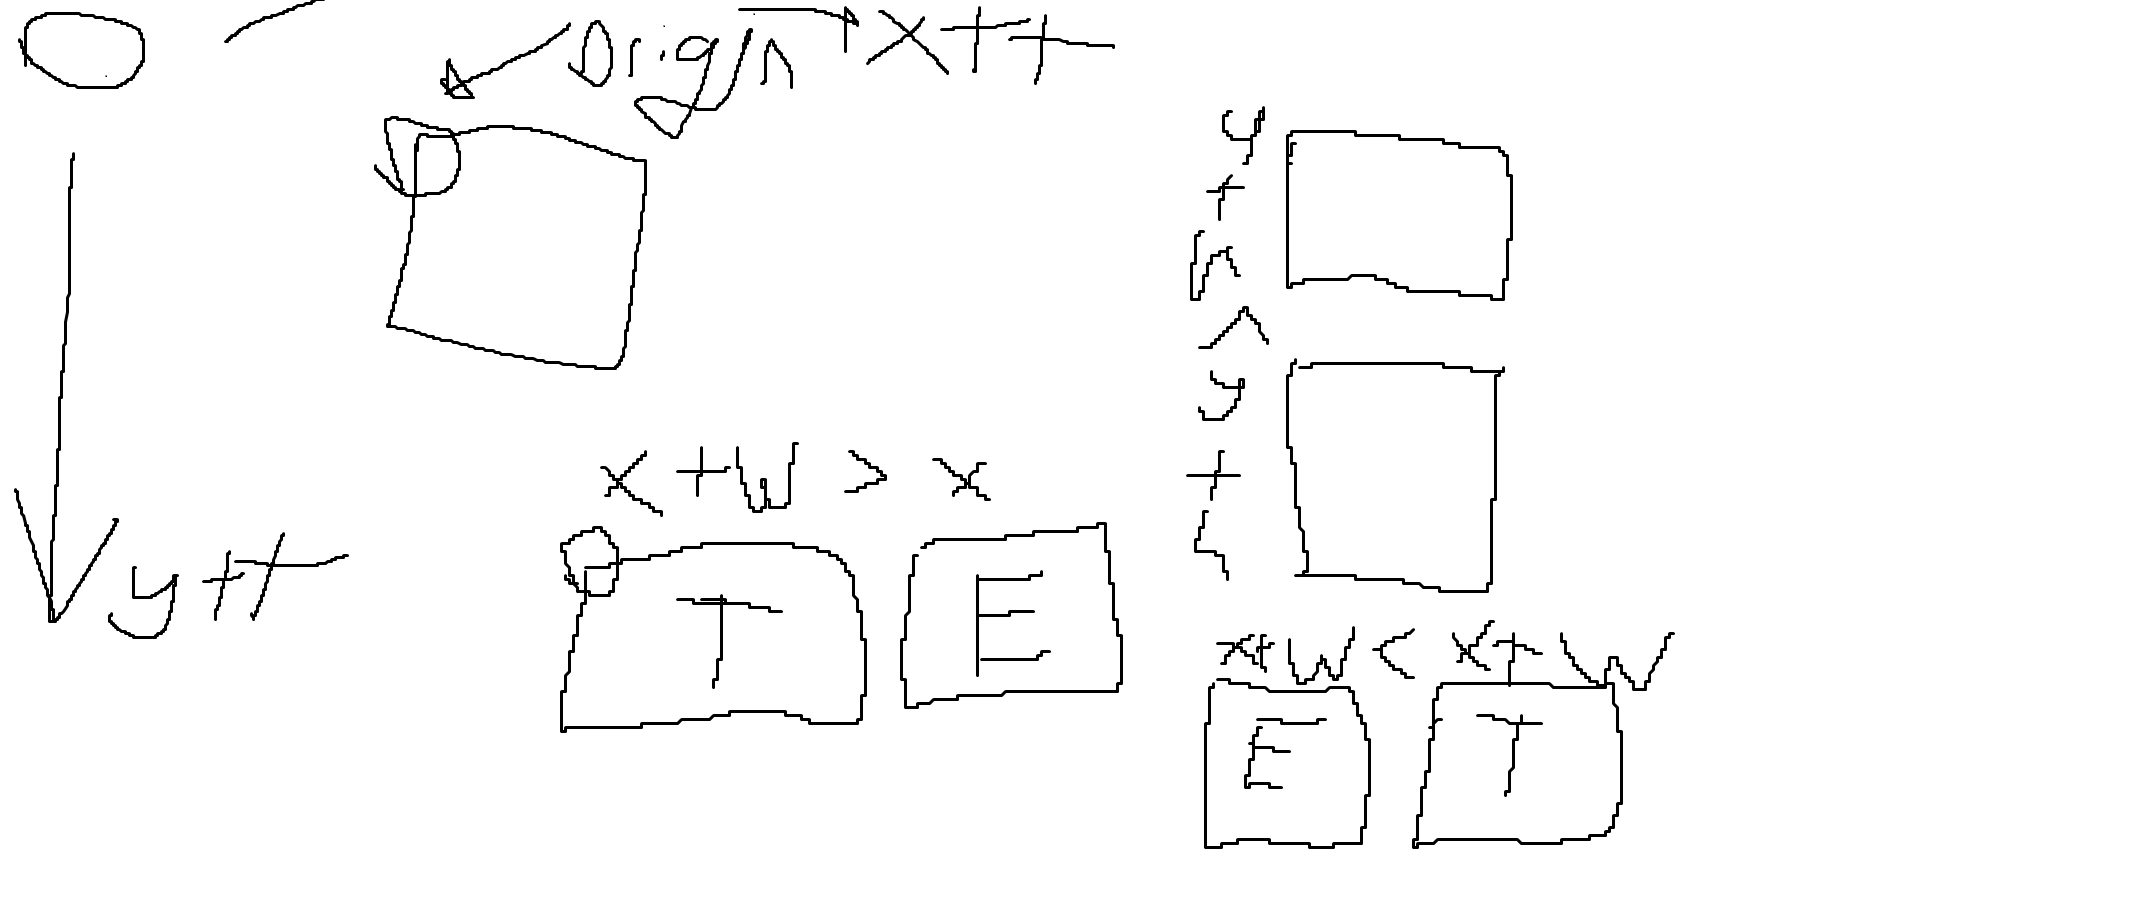 Origin
x++
y++
x + w > x
T
E
y
+
h
<
y
+
x+ w < x + w
E
T